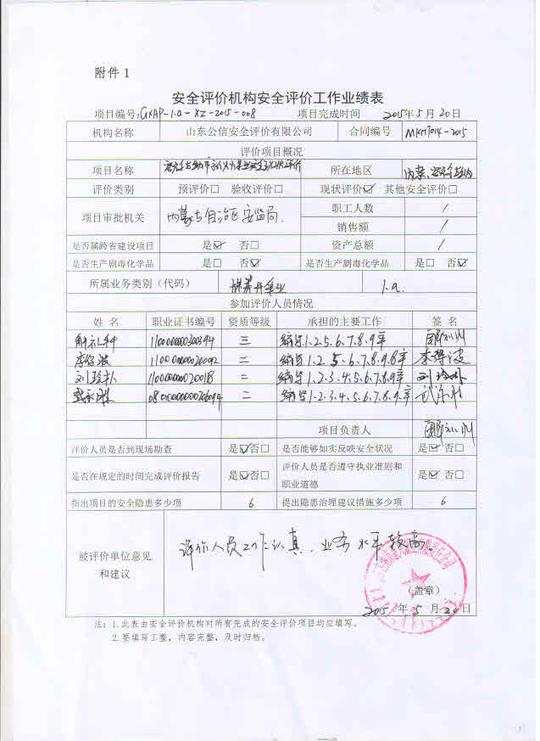 附件 1
安全评价机构安全评价工作业绩表
项目编号: GXAP-1.a-XZ-2015-008 项目完成时间 2015年5月20日
机构名称 山东公信安全评价有限公司 合同编号
评价项目概况
项目名称 所在地区 内蒙、
评价类别 预评价□ 验收评价□ 现状评价☑ 其他安全评价□
项目审批机关 内蒙古自治区安监局 职工人数 /
销售额 /
资产总额 /
是否属跨省建设项目 是☑ 否□
是否生产剧毒化学品 是□ 否☑ 是否生产剧毒化学品 是□ 否☑
所属业务类别（代码） 煤炭开采业 1.a.
参加评价人员情况
姓 名 职业证书编号 资质等级 承担的主要工作 签 名
1100000000200394 三 编写1.2.5.6.7.8.9章
1100000000202092 二 编写1.2.5.6.7.8.9.章
1100000000202018 二 编写1.2.3.4.5.6.7.8.9章
二 编写1.2.3.4.5.6.7.8.9章
项目负责人
评价人员是否到现场勘查 是☑否□ 是否能够如实反映安全状况 是☑否□
是否在规定的时间完成评价报告 是☑否□ 评价人员是否遵守执业准则和职业道德 是☑否□
指出项目的安全隐患多少项 6 提出隐患治理建议措施多少项 6
被评价单位意见
和建议
评价人员工作认真，业务水平较高。
（盖章）
2015年5月20日
注：1.此表由安全评价机构对所有完成的安全评价项目均应填写。
2.要填写工整、内容完整、及时归档。